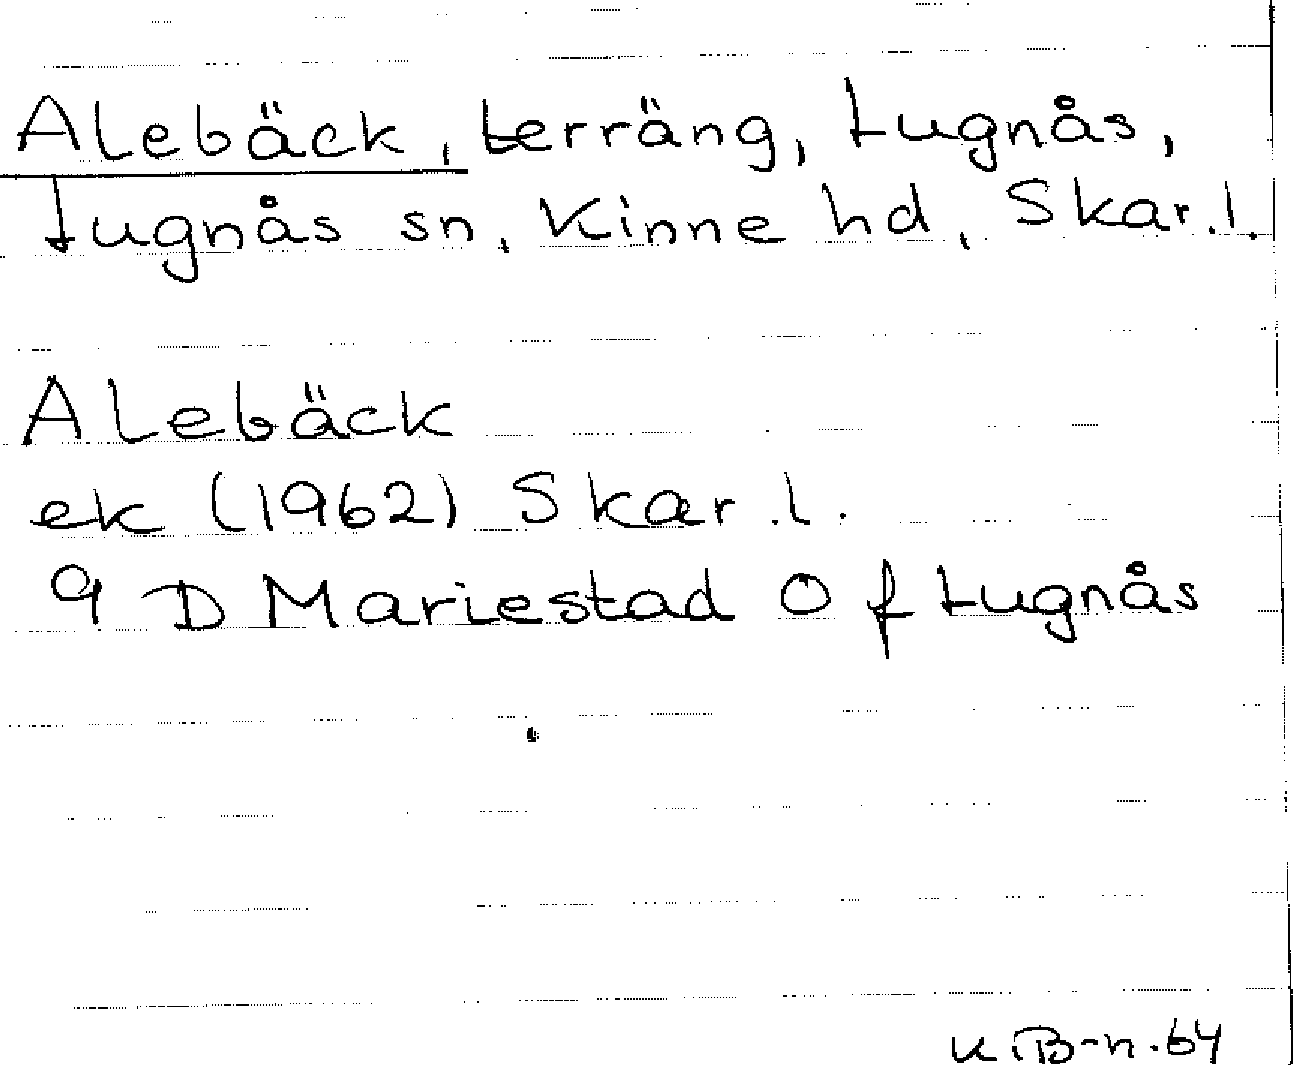 Alebäck, terräng, Lugnås,
Lugnås sn, Kinne hd, Skar.l.
Alebäck
ek (1962) Skar.l.
9 D Mariestad O f Lugnås
K.B-n.64